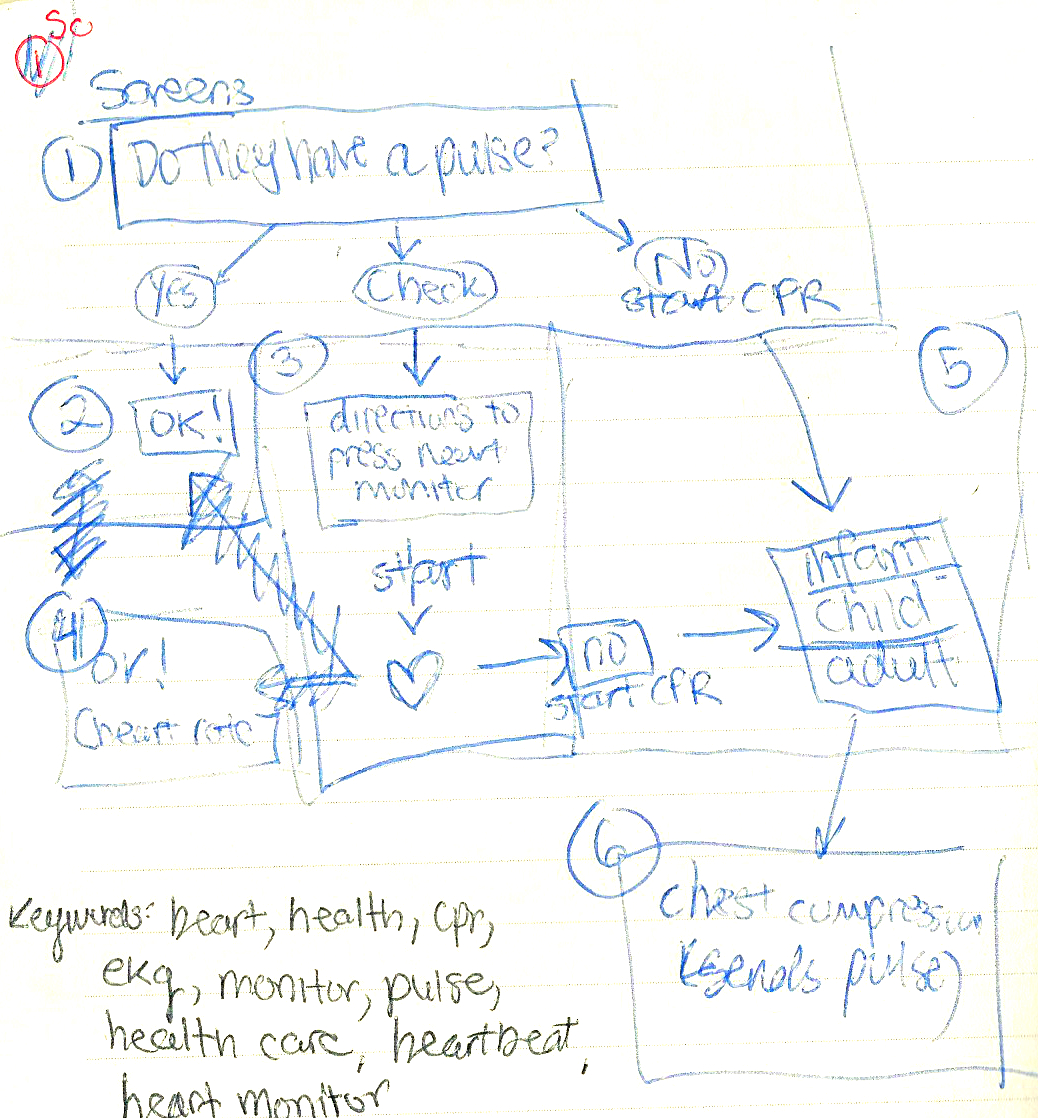 So
1
Screens
1 Do they have a pulse?
Yes
Check
No
start CPR
3
5
2 OK!
directions to
press heart
monitor
start
infant
child
adult
4
or!
no
start CPR
(heart rate)
6
chest compression
(sends pulse)
Keywords: heart, health, cpr,
ekg, monitor, pulse,
health care, heartbeat,
heart monitor